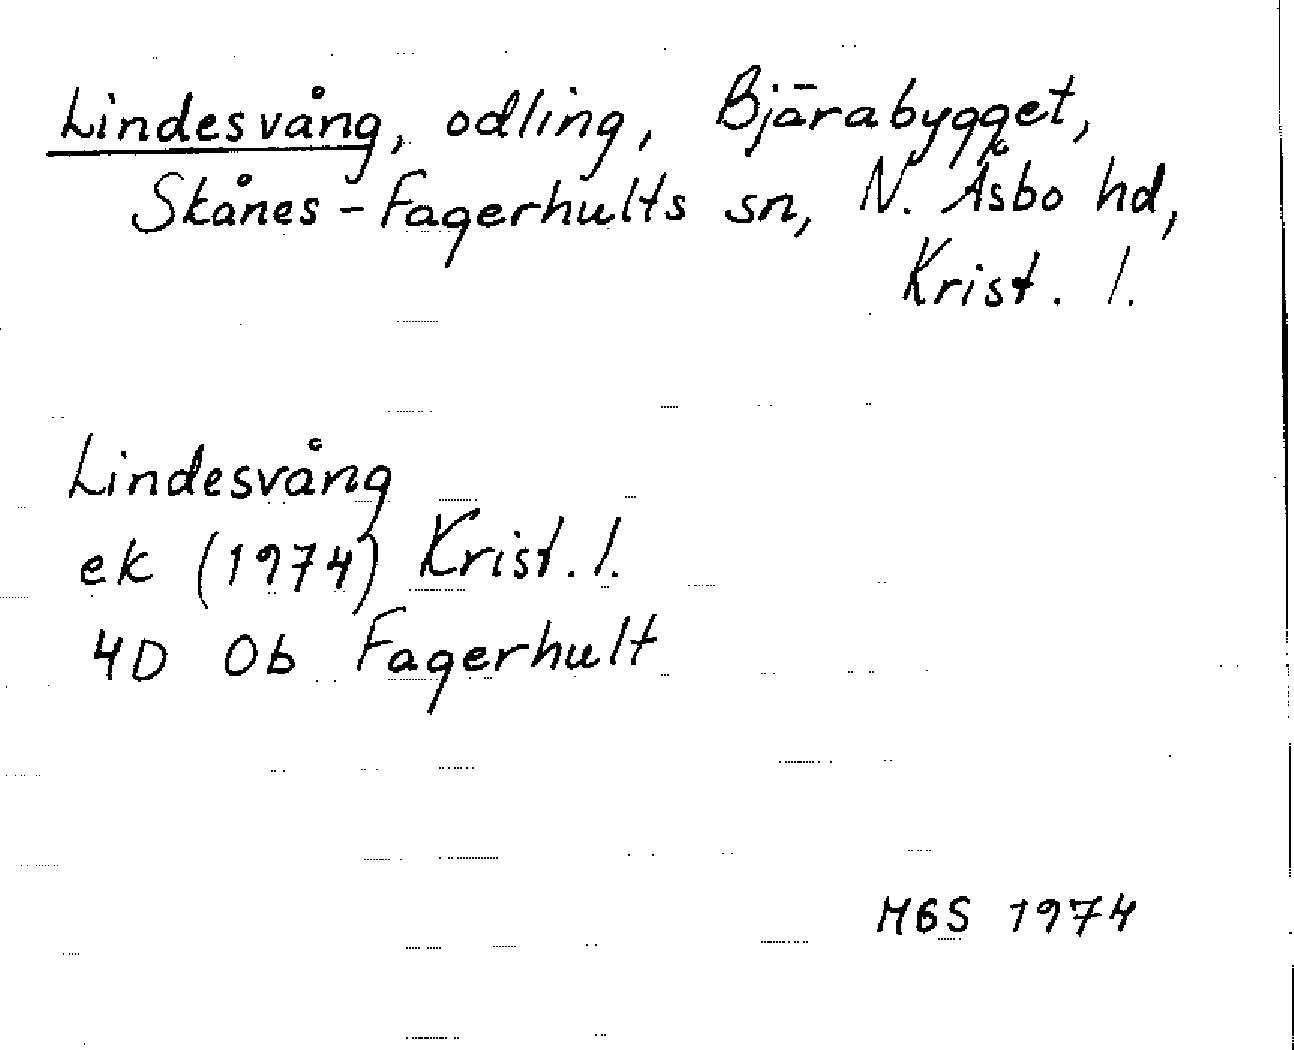 Lindesvång, odling, Bjärabygget,
Skånes-Fagerhults sn, N. Åsbo hd,
Krist. l.
Lindesvång
ek (1974) Krist. l.
4D 0b Fagerhult
MGS 1974